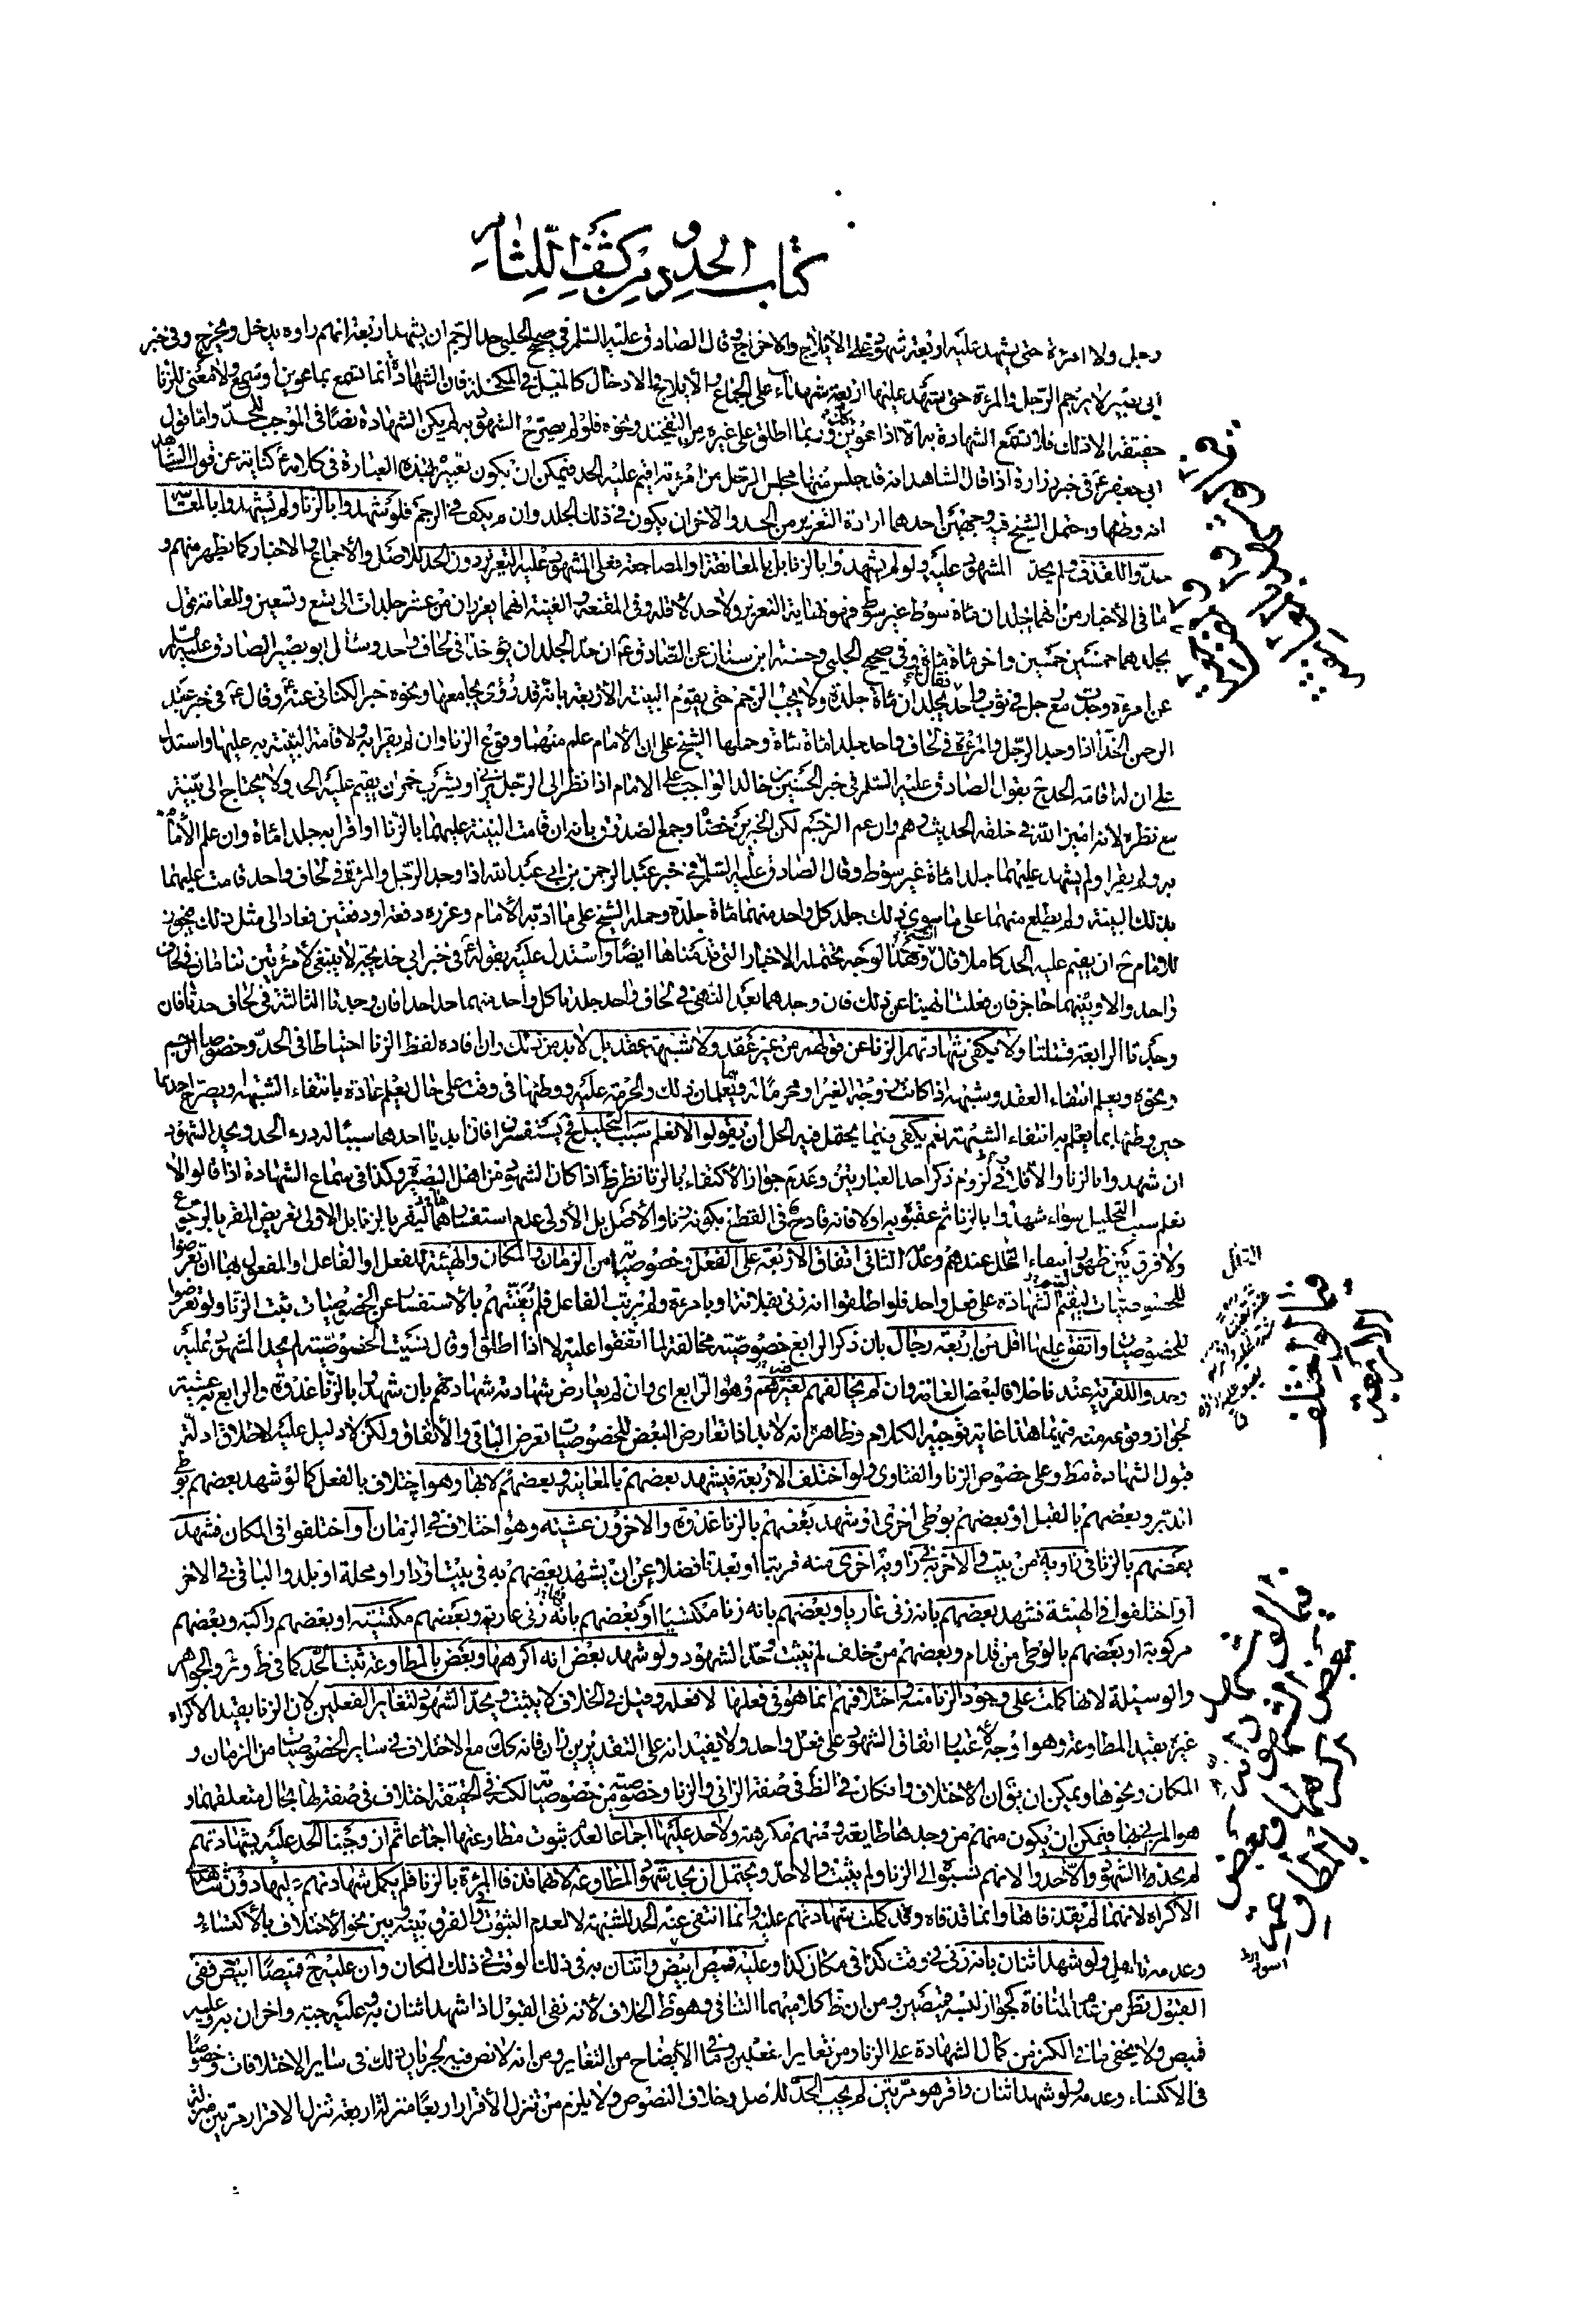 كتاب الحدود من كشف اللثام
رجل ولا امرءة حتى يشهد عليه اربعة شهود على الايلاج والاخراج وقال الصادق عليه السلم في صحيح الحلبي حد الرجم ان يشهد اربعة انهم راوه يدخل ويخرج وفي خبر
ابي بصير لا يرجم الرجل والمرءة حتى يشهد عليهما اربعة شهداء على الجماع والايلاج والادخال كالميل في المكحلة فان الشهادة انما تسمع بما عوين او سمع ولا معنى للزنا
حقيقة الا ذلك فلا تسمع الشهادة به الا اذا عوين كذلك وربما اطلق على غيره من التفخيذ ونحوه فلو لم يصرح الشهود به لم يكن الشهادة نصا في الموجب للحد واما قول
ابي جعفر ع في خبر زرارة اذا قال الشاهد انه قد جلس منها مجلس الرجل من امرءته اقيم عليه الحد فيمكن ان يكون تعبيره بهذه العبارة في كلامه ع كناية عن قول الشاهد
انه وطئها واحتمل الشيخ فيه وجهين احدهما ارادة التعزير من الحد والاخر ان يكون في ذلك الجلد وان لم يكف في الرجم فلو شهدوا بالزنا ولم يشهدوا بالمعاينة
حدوا للقذف ولم يحد المشهود عليه ولو لم يشهدوا بالزنا بل بالمعانقة او المضاجعة فعلى المشهود عليه التعزير دون الحد للاصل والاجماع والاخبار كما يظهر منهم و
ما في الاخبار من انهما يجلدان مائة سوط غير سوط فهو غاية التعزير ولا حد لاقله وفي المقنعة والغنية انهما يعزران من عشر جلدات الى تسع وتسعين وللعامة قول
بجلدهما خمسين خمسين واخر مائة مائة وفي صحيح الحلبي وحسنة ابن سنان عن الصادق ع ان حد الجلد ان يؤخذا في لحاف واحد وسئل ابو بصير الصادق عليه السلم
عن امرءة وجدت مع رجل في ثوب واحد فقال يجلدان مائة جلدة ولا يجب الرجم حتى يقوم البينة الاربعة بانه قد رؤى يجامعها ونحوه خبر الكناني عنه ع وقال ع في خبر عبد
الرحمن الحذاء اذا وجد الرجل والمرءة في لحاف واحد جلدا مائة مائة وحملها الشيخ على ان الامام علم منهما وقوع الزنا وان لم يقرا به ولا قامت البينة به عليهما واستدل
على ان له اقامة الحد ح بقول الصادق عليه السلم في خبر الحسين بن خالد الواجب على الامام اذا نظر الى الرجل يزني او يشرب خمرا ان يقيم عليه الحد ولا يحتاج الى بينة
مع نظره لانه امين الله في خلقه الحديث وهو وان عم الرجم لكن الخبرين خصا وجمع الصدوق بانه ان قامت البينة عليهما بالزنا او اقرا به جلدا مائة وان علم الامام
به ولم يقرا ولم يشهد عليهما جلدا مائة غير سوط وقال الصادق عليه السلم في خبر عبد الرحمن بن ابي عبد الله اذا وجد الرجل والمرءة في لحاف واحد قامت عليهما
بذلك البينة ولم يطلع منهما على ما سوى ذلك جلد كل واحد منهما مائة جلدة وحمله الشيخ على ما ادبه الامام وعزره دفعة او دفعتين فعاد الى مثل ذلك فيجوز
للامام ح ان يقيم عليه الحد كاملا قال وهذا الوجه يحتمله الاخبار التي قدمناها ايضا واستدل عليه بقوله ع في خبر ابي خديجة لا ينبغي لامرءتين تنامان في لحاف
واحد والا وبينهما حاجز فان فعلتا نهيتا عن ذلك فان وجدهما بعد النهي في لحاف واحد جلدتا كل واحد منهما حدا حدا فان وجدتا الثالثة في لحاف حدتا فان
وجدتا الرابعة قتلتا ولا يكفي شهادتهم بالزنا عن قولهم من غير عقد ولا شبهة عقد بل لا بد من ذلك وان افاده لفظ الزنا احتياطا في الحد وخصوصا الرجم
ونحوه ويعلم انتفاء العقد وشبهته اذا كانت زوجة الغير او محرما له ويعلمان ذلك والحرمة عليه ووطئها في وقت على حال يعلم عادة بانتفاء الشبهة ويصرح احدهما
حين وطئها بما يعلم به انتفاء الشبهة نعم يكفي فيما يحتمل فيه الحل ان يقولوا لا نعلم سبب التحليل ح يستفسران فان ابديا احدهما سببا له درء الحد ويحد الشهود
ان شهدوا بالزنا والا فلا وفي لزوم ذكر احد العبارتين وعدم جواز الاكتفاء بالزنا نظر ظ اذا كان الشهود من اهل البصيرة وكذا في سماع الشهادة اذا قالوا لا
نعلم سبب التحليل سواء شهدوا بالزنا ثم عقبوه به او لا فانه قادح في القطع بكونه زنا والاصل بل الاولى عدم استفسارهما ليقر بالزنا بل الاولى تعريض المقر بالرجوع
ولا فرق بين ظهور انتفاء الحل عندهم وعدمه الثاني اتفاق الاربعة على الفعل وخصوصياته من الزمان والمكان والهيئة للفعل او الفاعل والمفعول بها ان تعرضوا
للخصوصيات ليقيم الشهادة على فعل واحد فلو اطلقوا انه زنى بفلانة او بامرءة ولم يرتب الفاعل فلم يعنتهم بالاستفسار عن الخصوصيات ثبت الزنا ولو تعرضوا
للخصوصيات واتفق عليها اقل من اربعة رجال بان ذكر الرابع خصوصية مخالفة لما اتفقوا عليه لا اذا اطلق او قال نسيت الخصوصية لم يحد المشهود عليه
وحدوا للفرية عند فاخلافا لبعض العامة وان لم يخالفهم لغيرهم وهو الرابع اي وان لم يعارض شهادته شهادتهم بان شهدوا بالزنا غدوة والرابع به عشية
لجواز وقوعه منه فيهما هذا غاية توجيه الكلام وظاهره انه لا بد اذا تعارض البعض للخصوصيات تعرض الباقي والاتفاق ولكن لا دليل عليه لاطلاق ادلة
قبول الشهادة مط وعلى خصوص الزنا والفتاوى ولو اختلف الاربعة فيشهد بعضهم بالمعاينة وبعضهم لا بها وهو اختلاف بالفعل كما لو شهد بعضهم بوطي
الدبر وبعضهم بالقبل او بعضهم بوطي اخرى او شهد بعضهم بالزنا غدوة والاخرون عشية وهو اختلاف في الزمان او اختلفوا في المكان فشهد
بعضهم بالزنا في زاوية من بيت والاخر به في زاوية اخرى منه قربتا او بعدتا فضلا عن ان يشهد بعضهم به في بيت او دار او محلة او بلد والباقي في الاخر
او اختلفوا في الهيئة فشهد بعضهم بانه زنى عاريا وبعضهم بانه زنا مكتسيا او بعضهم بانه زنى بها عارية وبعضهم مكتسية او بعضهم راكبة وبعضهم
مركوبة او بعضهم بالوطي من قدام وبعضهم من خلف لم يثبت وحد الشهود ولو شهد بعض انه اكرهها وبعض بالمطاوعة ثبت الحد كما في ط وئر والجواهر
والوسيلة لانها كملت على وجود الزنا منه واختلافهم انما هو في فعلها لا فعله وقيل في الخلاف لا يثبت ويحد الشهود لتغاير الفعلين لان الزنا بقيد الاكراه
غيره بقيد المطاوعة وهو اوجه لاعتبار اتفاق الشهود على فعل واحد ولا يفيد انه على التقديرين زان فانه كك مع الاختلاف في ساير الخصوصيات من الزمان و
المكان ونحوها ويمكن ان يق ان الاختلاف وان كان في الظ في صفة الزاني والزنا وخصوصية من خصوصياته لكنه في الحقيقة اختلاف في صفة لها بحال متعلقهما و
هو المزني بها فيمكن ان يكون منهم من وجدها طايعة ومنهم مكرهة ولا حد عليها اجماعا لعدم ثبوت مطاوعتها اجماعا ثم ان اوجبنا الحد عليه بشهادتهم
لم يحد الشهود والا حدوا لانهم نسبوه الى الزنا ولم يثبت والاحد ويحتمل ان يحد شهود المطاوعة لانهما قذفا المرءة بالزنا فلم يكمل شهادتهم عليها دون شاهدي
الاكراه لانهما لم يقذفاها وانما قذفاه وقد كملت شهادتهم عليه وانما انتفى عنه الحد للشبهة لا لعدم الثبوت والفرق بينه وبين نحو الاختلاف بالاكتساء و
وعدمه تامل ولو شهد اثنان بانه زنى في وقت كذا في مكان كذا وعليه قميص ابيض واثنان به في ذلك الوقت في ذلك المكان وان عليه ح قميصا ابيض ففي
القبول نظر من عدم المنافاة لجواز لبسه قميصين ومن ان ظ كلاميهما التنافي وهو ظ الخلاف لانه نفى القبول اذا شهد اثنان به وعليه جبة واخران به وعليه
قميص ولا يخفى ما في الكنز من كمال الشهادة على الزنا ومن تغاير الفعلين وفي الايضاح من التغاير ومن انه لا نص فيه لجريان ذلك في ساير الاختلافات وخصوصا
في الاكتساء وعدمه ولو شهد اثنان واقر هو مرتين لم يجب الحد للاصل وخلاف النصوص ولا يلزم من تنزل الاقرار اربعا منزلة اربعة تنزل الاقرار مرتين منزلة
فيما لو اختلف
الاربعة
فيما لو شهد
بعض الشهود
اكرهها وبعض
بالمطاوعة
اسود